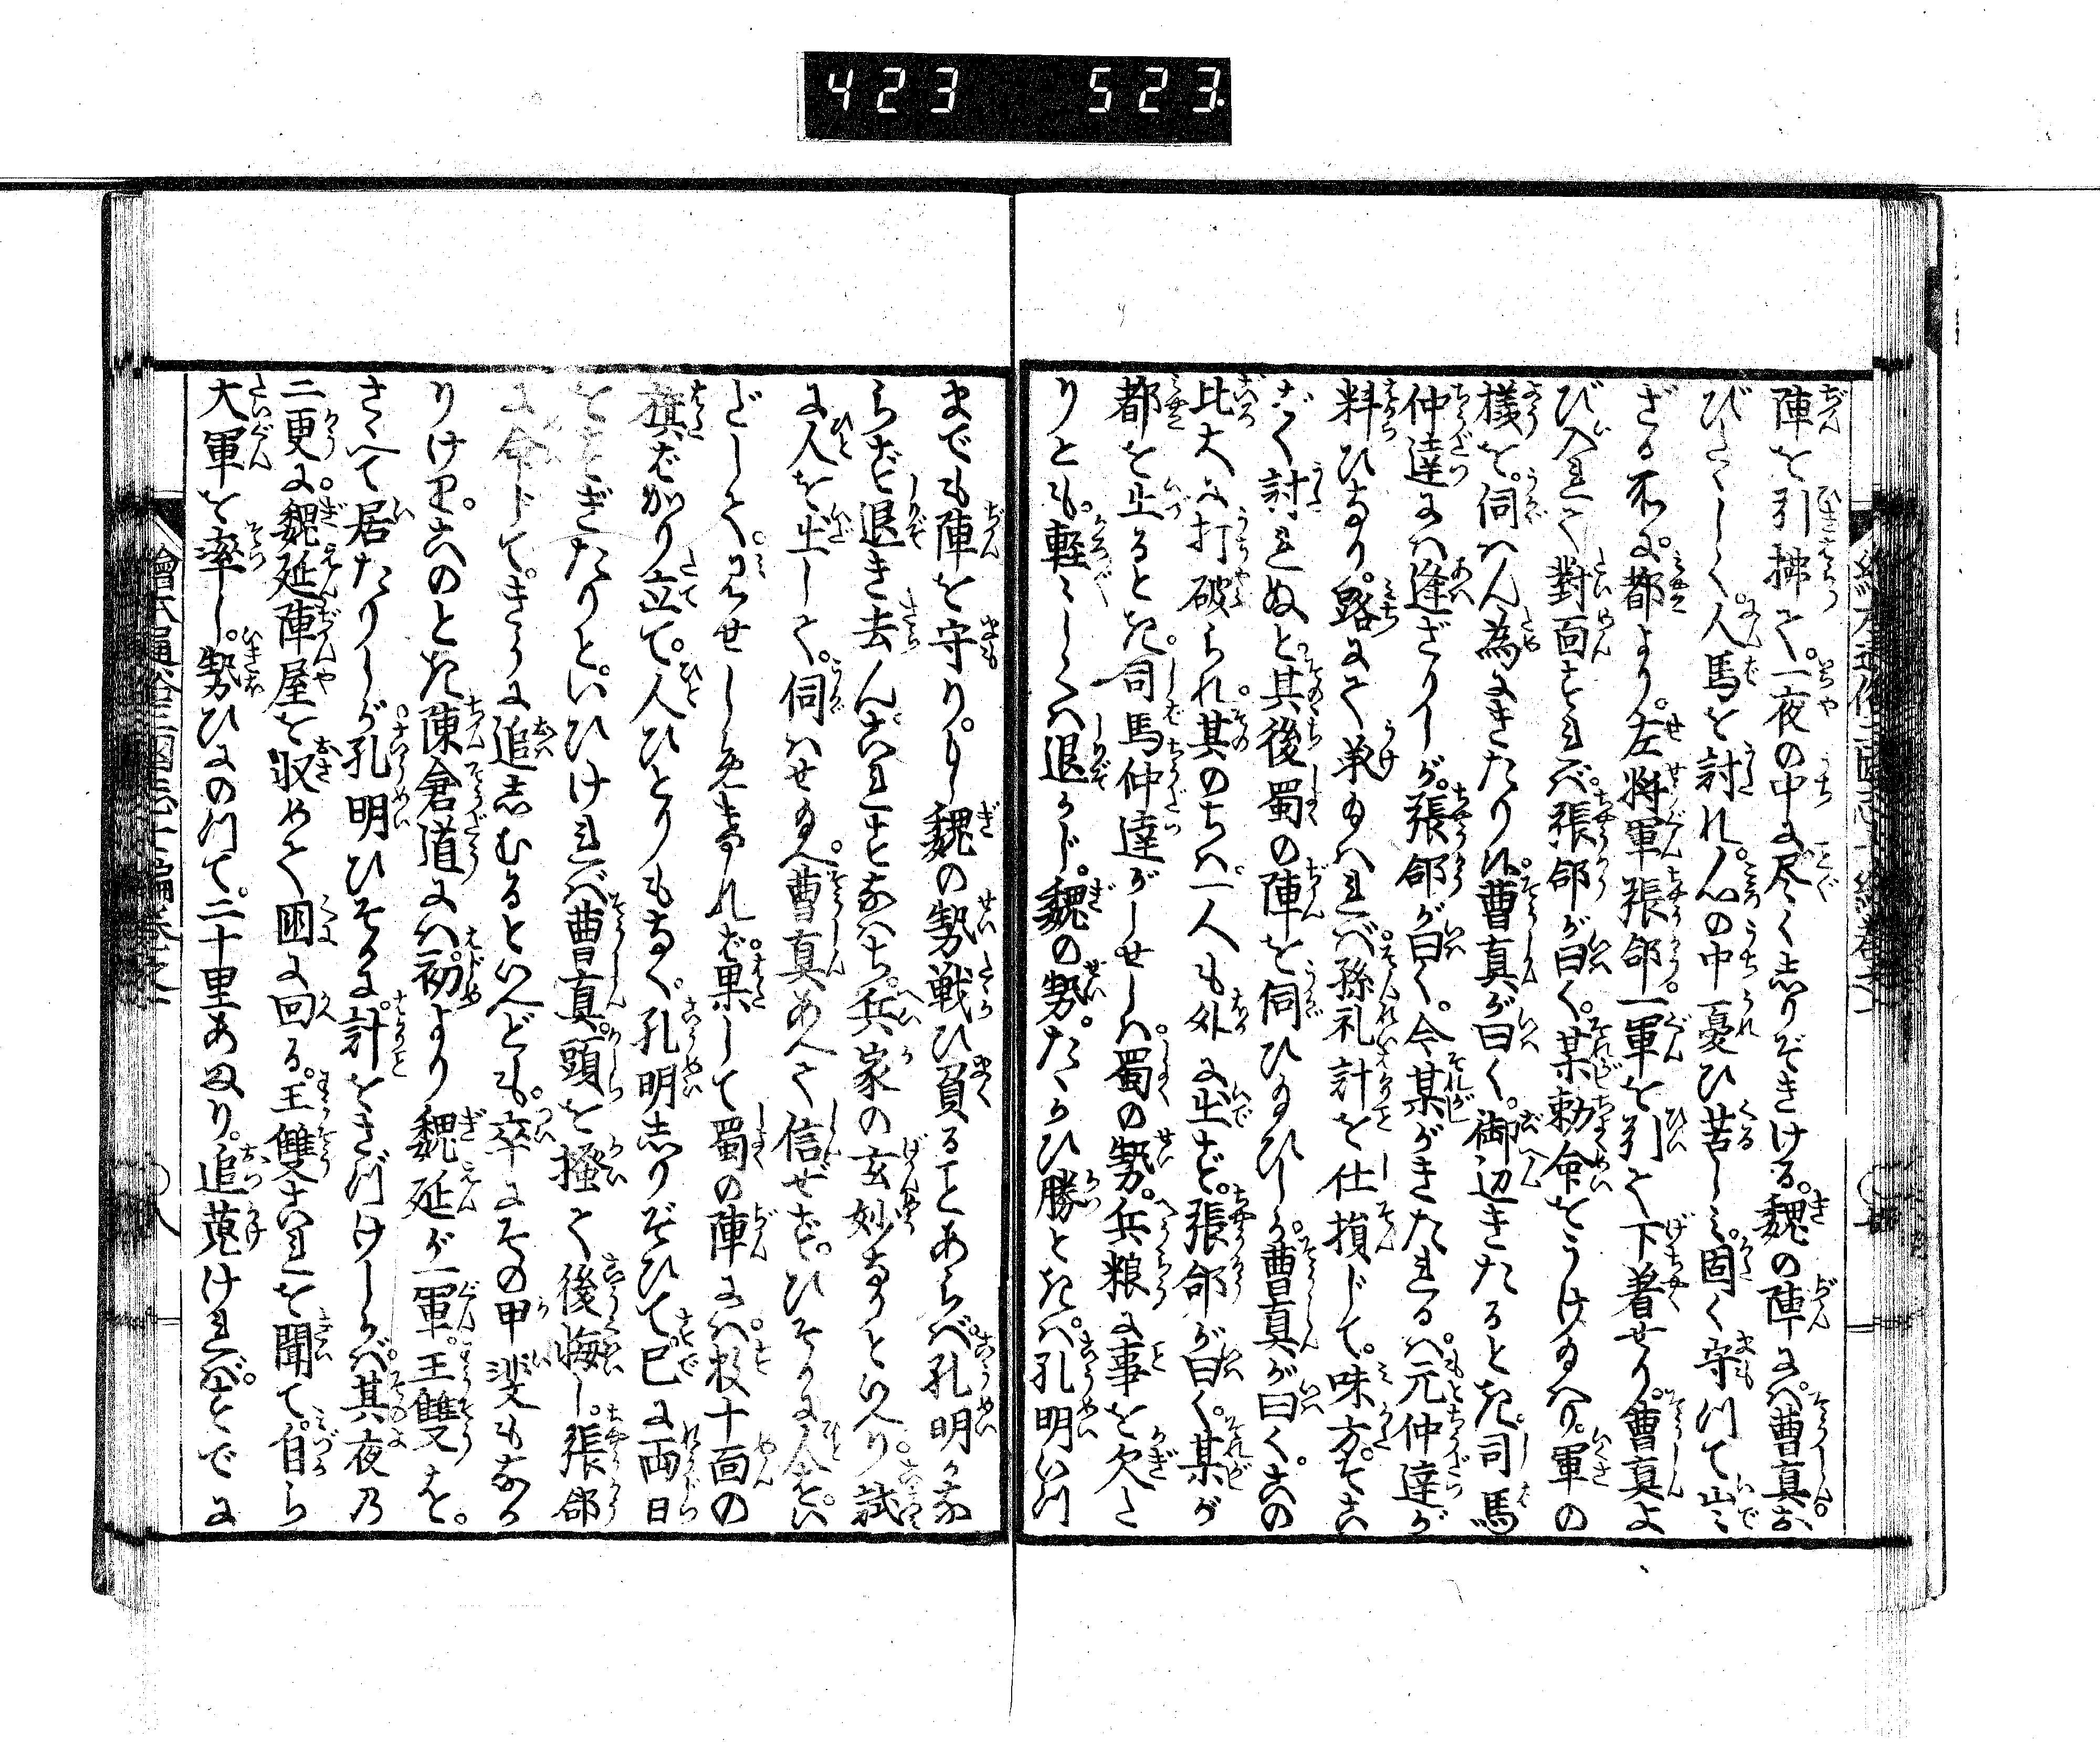 423 523
陣を引拂て。一夜の中に尽く志りぞきける。魏の陣には。曹真お
びたゝしく。人馬を討れ。心の中憂ひ苦しみ。固く守つて出
ざる所に。都より。左将軍張郃。一軍を引て下着せり。曹真よ
び入れて對面すれば。張郃が曰く。某勅命をうけ給へり。軍の
樣を。伺はん為にきたり候。曹真が曰く。御辺きたるとき。司馬
仲達には逢ざりしが。張郃が曰く。今某がきたれるは。元仲達が
料ひなり。路にて承り候へば。孫礼計を仕損じて。味方こと〴〵
ごく討れぬと。其後蜀の陣を伺ひ給ひしか。曹真が曰く。この
比大に打破られ。其のちは一人も外に出ず。張郃が曰く。某が
都を出るとき。司馬仲達が申せしは。蜀の勢。兵粮に事を欠た
りとも。軽〻しくは退かじ。魏の勢。たゝかひ勝ときは。孔明いつ
までも陣を守り。もし魏の勢戦ひ負ることあらば。孔明かな
らず退き去ん。これすなはち。兵家の玄妙なりといへり。試
に人を出して。伺はせ給へ。曹真あへて信ぜず。ひそかに人をい
だして。みせしめければ。果して蜀の陣には。数十面の
旗ばかり立て。人ひとりもなく。孔明志りぞひて。已に両日
をすぎたりと。いひければ。曹真。頭を掻て後悔し。張郃
に命下て。きうに追志むるといへども。卒にその甲斐もなか
りけり。このとき陳倉道には。初より魏延が一軍。王雙を。
さゝへて居たりしが。孔明ひそかに。計をさづけしかば。其夜乃
二更に。魏延陣屋を収めて国に回る。王雙これを聞て。自ら
大軍を率し。勢ひにのつて。二十里あまり。追蒐ければ。すでに
繪本通俗三國志七編巻之一